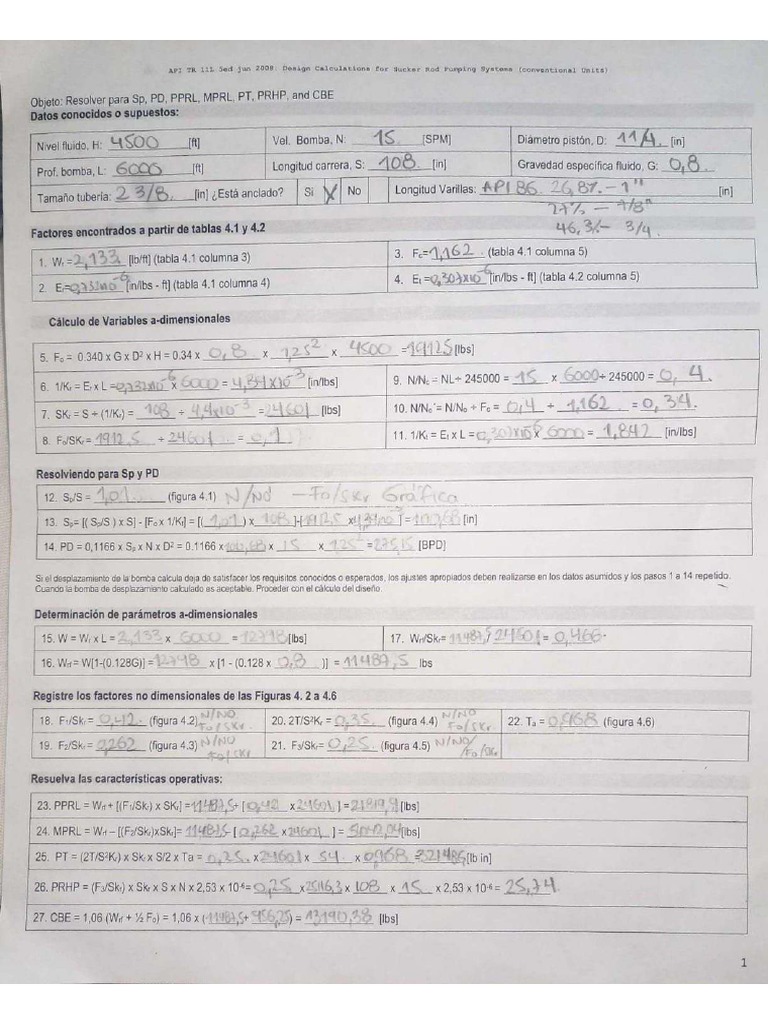 API TR 11L 5ed jun 2008: Design Calculations for Sucker Rod Pumping Systems (conventional Units)
Objeto: Resolver para Sp, PD, PPRL, MPRL, PT, PRHP, and CBE
Datos conocidos o supuestos:
Nivel fluido, H: 4500 [ft] Vel. Bomba, N: 15 [SPM] Diámetro pistón, D: 1 1/4. [in]
Prof. bomba, L: 6000 [ft] Longitud carrera, S: 108 [in] Gravedad especifica fluido, G: 0,8
Tamaño tubería: 2 3/8. [in] ¿Está anclado? Si X No Longitud Varillas: API 86. 26,8%. - 1" [in]
27% - 7/8"
46,3% - 3/4.
Factores encontrados a partir de tablas 4.1 y 4.2
1. Wr = 2,133 [lb/ft] (tabla 4.1 columna 3) 3. Fc= 1,162 . (tabla 4.1 columna 5)
2 Er= 0,732x10⁻⁶ [in/lbs - ft] (tabla 4.1 columna 4) 4. Et = 0,307x10⁻⁶ [in/lbs - ft] (tabla 4.2 columna 5)
Cálculo de Variables a-dimensionales
5. Fo = 0.340 x G x D² x H = 0.34 x 0,8 x 1,25² x 4500 = 1912,5 [lbs]
6. 1/Kr = Er x L = 0,732x10⁻⁶ x 6000 = 4,39x10⁻³ [in/lbs] 9. N/No = NL÷ 245000 = 15 x 6000 ÷ 245000 = 0,4.
7. SKr = S ÷ (1/Kr) = 108 ÷ 4,4x10⁻³ = 24601 [lbs] 10. N/No´= N/No ÷ Fc = 0,4 ÷ 1,162 = 0,34.
8. Fo/SKr = 1912,5 ÷ 24601 = 0,1 11. 1/Kt = Et x L = 0,307x10⁻⁶ x 6000 = 1,842 [in/lbs]
Resolviendo para Sp y PD
12. Sp/S = 1,01 (figura 4.1) N/No´ - Fo/skr Gráfica
13. Sp= [( Sp/S ) x S] - [Fo x 1/Kt] = [( 1,01 ) x 108 ]-[ 1912,5 x 4,39x10⁻³ ] = 100,68 [in]
14. PD = 0,1166 x Sp x N x D² = 0.1166 x 100,68 x 15 x 1,25² = 275,15 [BPD]
Si el desplazamiento de la bomba calcula deja de satisfacer los requisitos conocidos o esperados, los ajustes apropiados deben realizarse en los datos asumidos y los pasos 1 a 14 repetido.
Cuando la bomba de desplazamiento calculado es aceptable. Proceder con el cálculo del diseño.
Determinación de parámetros a-dimensionales
15. W = Wr x L = 2,133 x 6000 = 12798 [lbs] 17. Wrf/Skr= 11487,5 / 24601 = 0,466.
16. Wrf = W[1-(0.128G)] = 12798 x [1 - (0.128 x 0,8 )] = 11487,5 lbs
Registre los factores no dimensionales de las Figuras 4. 2 a 4.6
18. F1/Skr = 0,42. (figura 4.2) N/No Fo/SKr. 20. 2T/S²Kr = 0,35. (figura 4.4) N/No Fo/SKr. 22. Ta = 0,968 (figura 4.6)
19. F2/Skr = 0,262 (figura 4.3) N/No Fo/SKr 21. F3/Skr= 0,25. (figura 4.5) N/No/Fo/SKr
Resuelva las características operativas:
23. PPRL = Wrf + [(F1/Skr) x SKr] = 11487,5 + [ 0,42 x 24601 ] = 21819,9 [lbs]
24. MPRL = Wrf – [(F2/Skr)xSKr]= 11487,5 - [ 0,262 x 24601 ] = 5042,04 [lbs]
25. PT = (2T/S²Kr) x Skr x S/2 x Ta = 0,25. x 24601 x 54. x 0,968 = 321486 [lb in]
26. PRHP = (F3/Skr) x Skr x S x N x 2,53 x 10⁻⁶= 0,25 x 25116,3 x 108 x 15 x 2,53 x 10⁻⁶ = 25,74
27. CBE = 1,06 (Wrf + ½ Fo) = 1,06 x ( 11487,5 + 956,25 ) = 13190,38 [lbs]
1